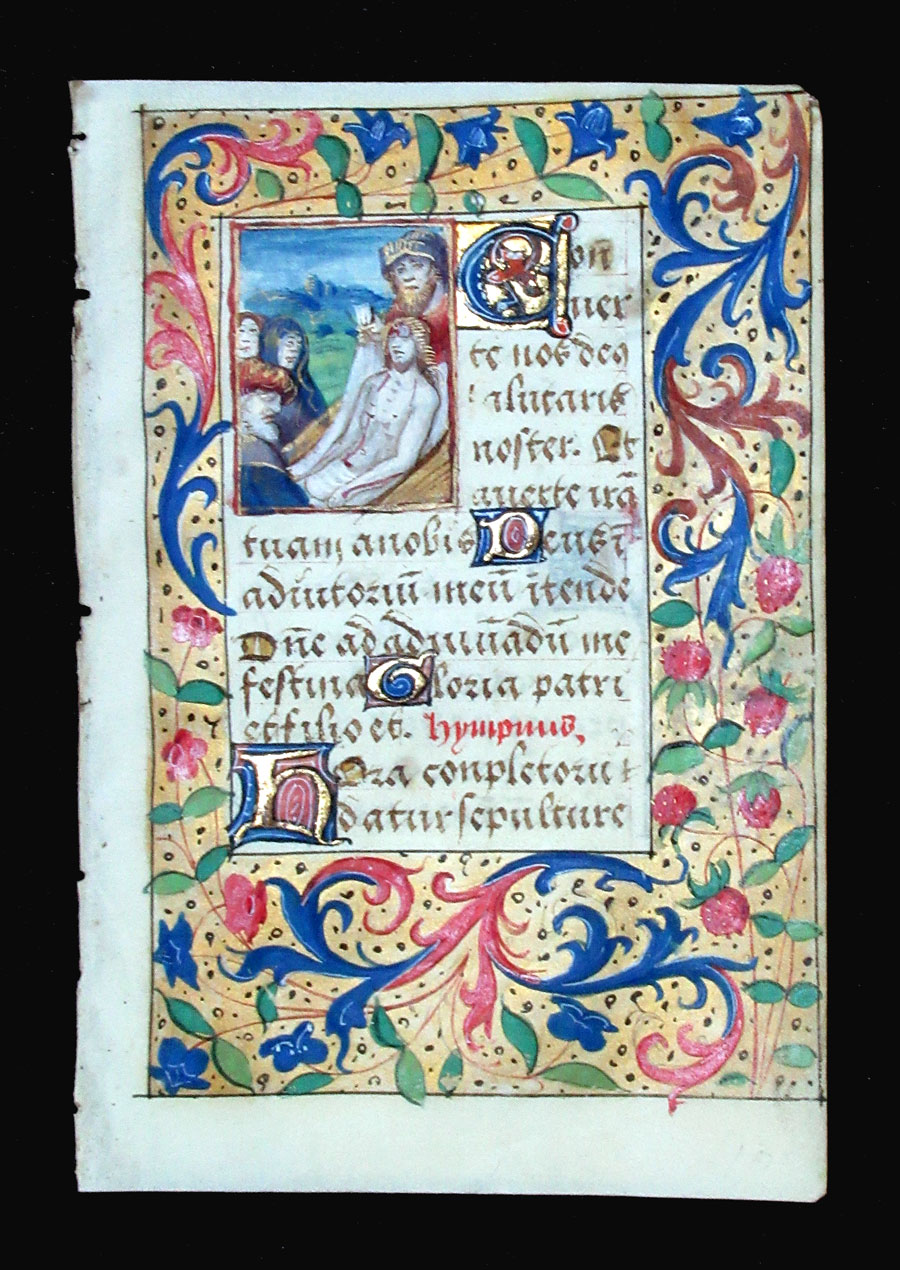 Con
uer
te nos deꝰ
salutaris
noster. Et
auerte irã
tuam anobis Deus ĩ
adiutoriũ meũ ĩtende
Dñe ad adiuuãdũ me
festina Gloria patri
et filio et. hympnus,
Hora conpletoriı
datur sepulture